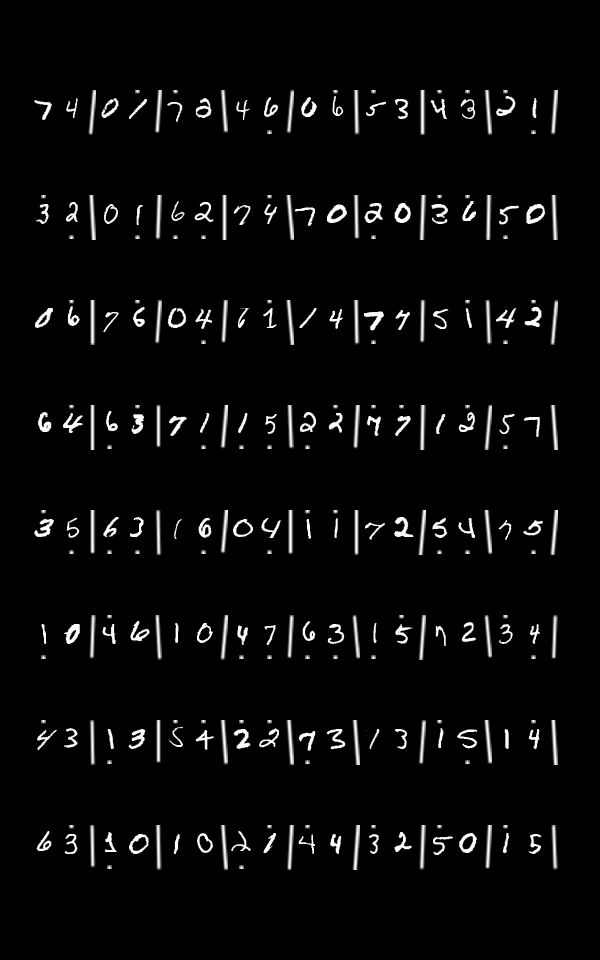 7 4 | 0 1 | 7 2 | 4 6 | 0 6 | 5 3 | 4 3 | 2 1 |
3 2 | 0 1 | 6 2 | 7 4 | 7 0 | 2 0 | 3 6 | 5 0 |
0 6 | 7 6 | 0 4 | 6 1 | 1 4 | 7 7 | 5 1 | 4 2 |
6 4 | 6 3 | 7 1 | 1 5 | 2 2 | 7 7 | 1 2 | 5 7 |
3 5 | 6 3 | 1 6 | 0 4 | 1 1 | 7 2 | 5 4 | 7 5 |
1 0 | 4 6 | 1 0 | 4 7 | 6 3 | 1 5 | 7 2 | 3 4 |
4 3 | 1 3 | 5 4 | 2 2 | 7 3 | 1 3 | 1 5 | 1 4 |
6 3 | 1 0 | 1 0 | 2 1 | 4 4 | 3 2 | 5 0 | 1 5 |